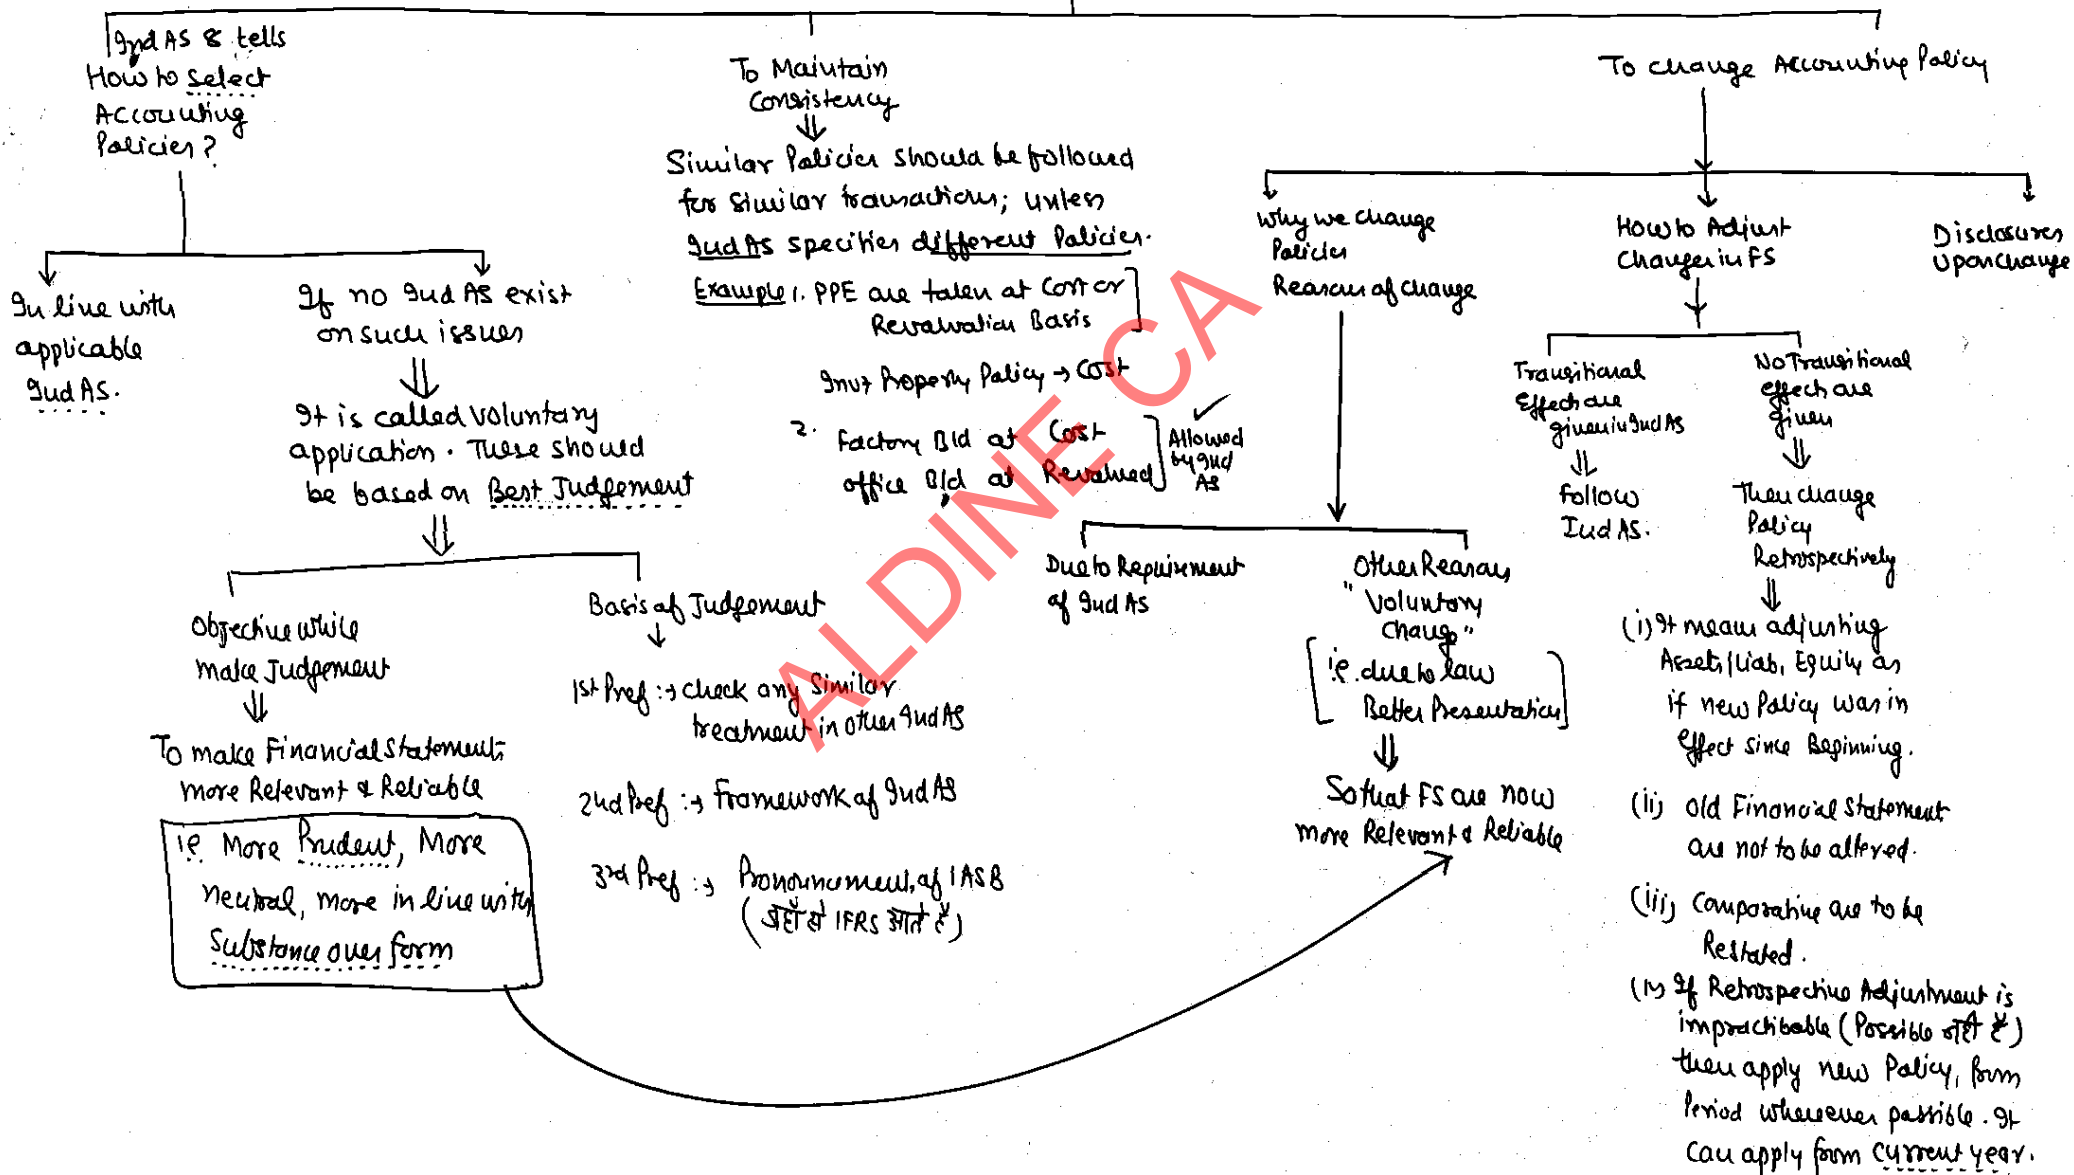 Ind AS 8 tells
How to select
Accounting
Policies?
In line with
applicable
Ind AS.
If no Ind AS exist
on such issues
It is called voluntary
application. These should
be based on Best Judgement
Objective while
make Judgement
To make Financial Statements
more Relevant & Reliable
ie More Prudent, More
neutral, more in line with
Substance over form
Basis of Judgement
1st Pref :→ Check any Similar
treatment in other Ind AS
2nd Pref :→ Framework of Ind AS
3rd Pref :→ Pronouncement of IASB
(जहाँ से IFRS आते हैं)
To Maintain
Consistency
Similar Policies should be followed
for similar transactions; unless
Ind AS specifies different Policies.
Example 1. PPE are taken at Cost or
Revaluation Basis
Invt Property Policy → Cost
2. Factory Bld at Cost
office Bld at Revalued
Allowed
by Ind
AS
To change Accounting Policy
Why we change
Policies
Reasons of change
Due to Requirement
of Ind AS
Other Reasons
"Voluntary
Change"
i.e. due to law
Better Presentation
So that FS are now
more Relevant & Reliable
How to Adjust
Changes in FS
Transitional
Effect are
given in Ind AS
Follow
Ind AS.
No Transitional
effect are
given
Then change
Policy
Retrospectively
(i) It means adjusting
Assets/Liab, Equity as
if new Policy was in
effect since Beginning.
(ii) Old Financial Statement
are not to be altered.
(iii) Comparative are to be
Restated.
(iv) If Retrospective Adjustment is
impracticable (Possible नहीं है)
then apply new Policy, from
Period wherever possible. It
can apply from current year.
Disclosures
Upon change
ALDINE CA